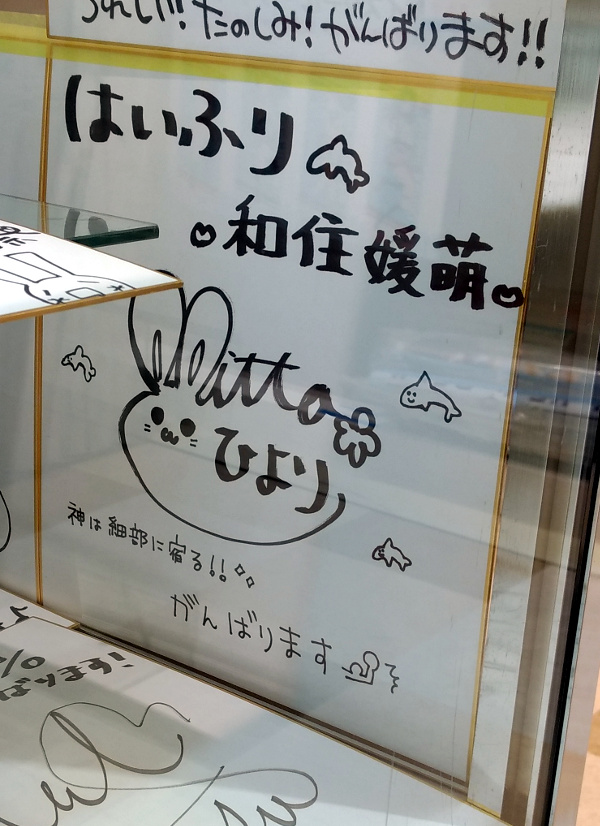 うれしい!たのしみ!がんばります!!
はいふり
和住媛萌
Mitta
ひより
神は細部に宿る!!
がんばります
%
ばります!